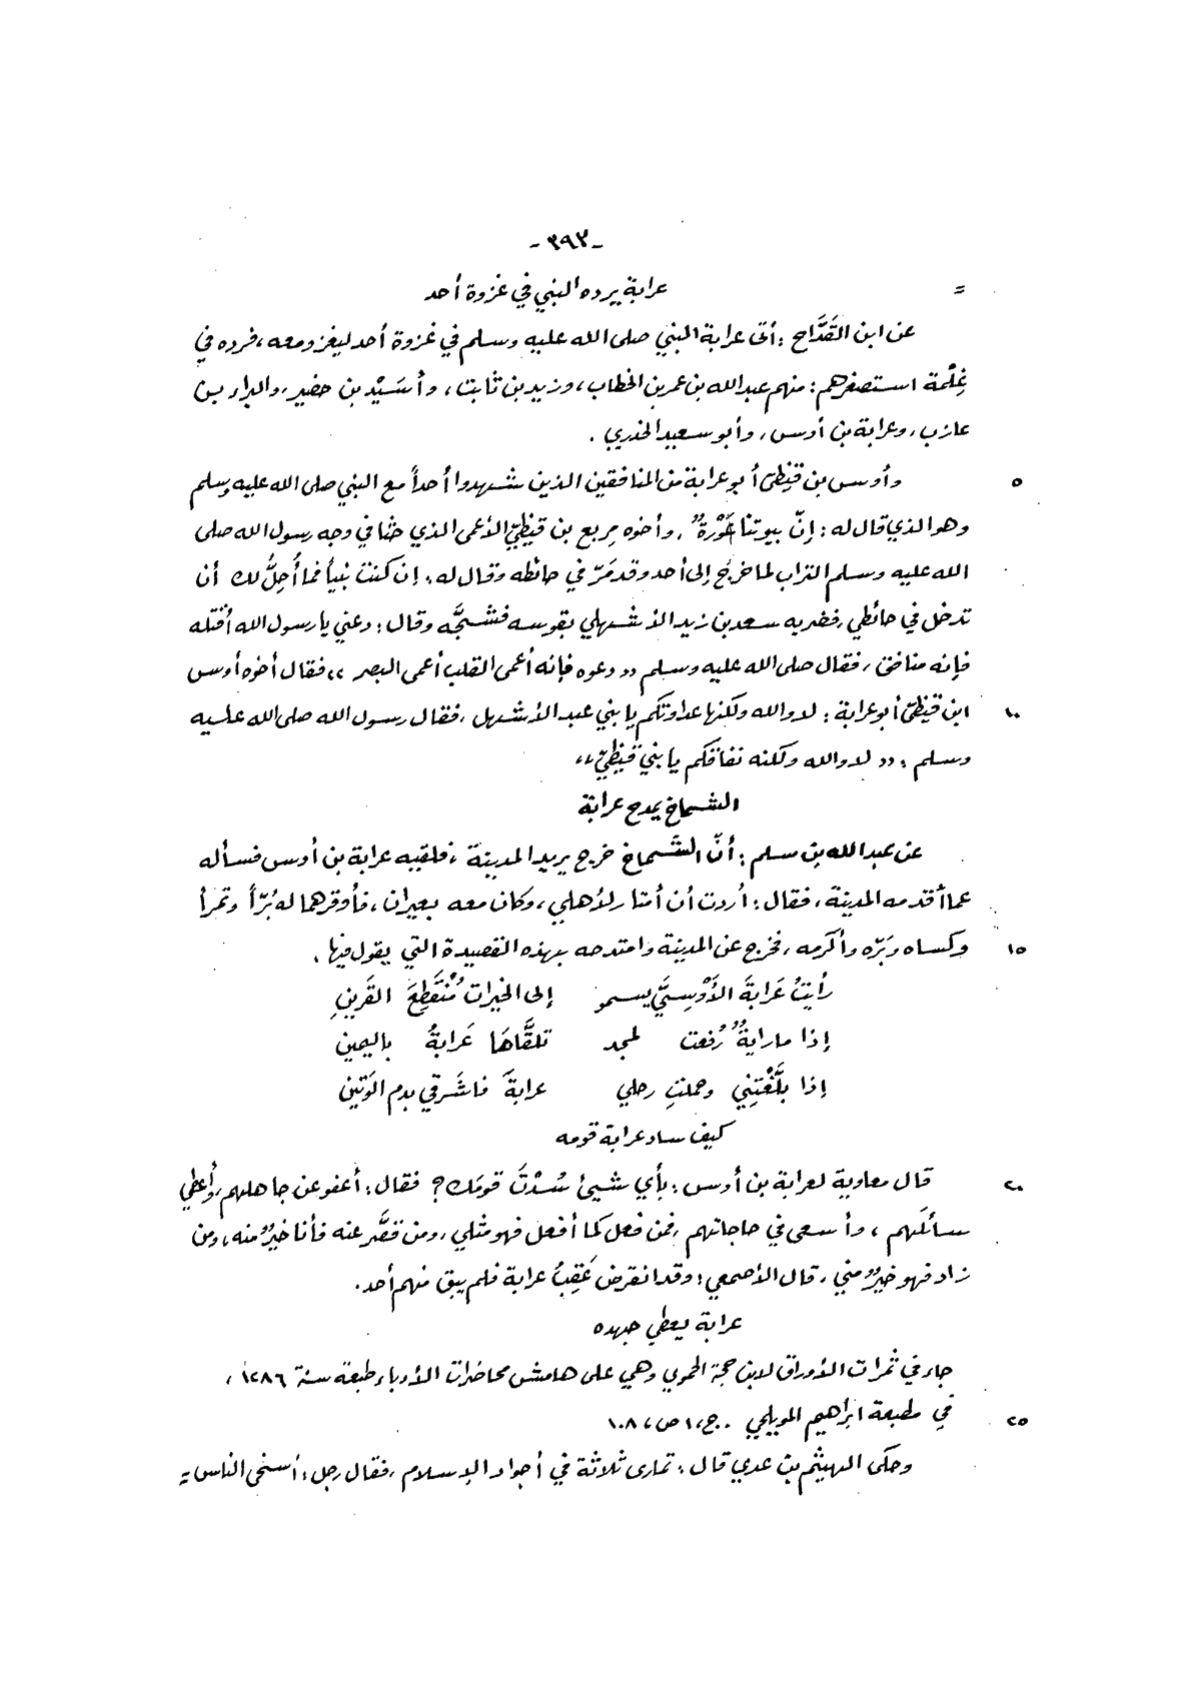 -٣٩٣-
= عرابة يرده النبي في غزوة أحد
عن ابن القَدَّاح : أتى عرابة النبي صلى الله عليه وسلم في غزوة أحد ليغزو معه ، فرده في
غِلْمة استصغرهم : منهم عبدالله بن عمر بن الخطاب ، وزيد بن ثابت ، وأُسَيْد بن حضير ، والبراء بن
عازب ، وعرابة بن أوس ، وأبو سعيد الخدري .
٥ وأوس بن قيظيّ أبو عرابة من المنافقين الذين شهدوا أحداً مع النبي صلى الله عليه وسلم
وهو الذي قال له : إنّ بيوتنا عَوْرةٌ ، وأخوه مِربع بن قيظيّ الأعمى الذي حثا في وجه رسول الله صلى
الله عليه وسلم التراب لما خرج إلى أحد وقد مَرّ في حائطه وقال له : إن كنت نبياً فما أُحِلُّ لك أن
تدخل في حائطي ، فضربه سعد بن زيد الأشهلي بقوسه فشجَّه وقال : دعني يا رسول الله أقتله
فإنه منافق ، فقال صلى الله عليه وسلم ,, دعوه فإنه أعمى القلب أعمى البصر ،، فقال أخوه أوس
١٠ ابن قيظيّ أبو عرابة : لا والله ولكنها عداوتكم يا بني عبد الأشهل ، فقال رسول الله صلى الله عليه
وسلم : ,, لا والله ولكنه نفاقكم يا بني قيظيّ ،،
الشماخ يمدح عرابة
عن عبد الله بن سلم : أنّ الشَّماخ خرج يريد المدينة ، فلقيه عرابة بن أوس فسأله
عما أقدمه المدينة ، فقال : أردت أن أمتار لأهلي ، وكان معه بعيران ، فأوقرهما له بُرّاً وتمراً
١٥ وكساه وبَرّه وأكرمه ، فخرج عن المدينة وامتدحه بهذه القصيدة التي يقول فيها .
رأيتُ عَرابةَ الأَوْسِيَّ يسمو إلى الخيراتِ مُنْقَطِعَ القَرينِ
إذا ما رايةٌ رُفعت لمجد تلقَّاهَا عَرابةُ باليمينِ
إذا بلَّغْتِنِي وحملتِ رحلي عرابةَ فاشْرَقي بدم الوَتينِ
كيف ساد عرابة قومه
٢٠ قال معاوية لعرابة بن أوس : بأي شيئ سُدْتَ قومَك ؟ فقال : أعفو عن جاهلهم ، وأعطي
سائلَهم ، وأسعى في حاجاتهم ، فمن فعل كما أفعل فهو مثلي ، ومن قصَّر عنه فأنا خيرٌ منه ، ومن
زاد فهو خيرٌ مني ، قال الأصمعي : وقد انقرض عَقِبُ عرابة فلم يبق منهم أحد .
عرابة يعطي جهده
جاء في ثمرات الأوراق لابن حجة الحموي وهي على هامش محاضرات الأدباء طبعة سنة ١٢٨٦ ،
٢٥ في مطبعة ابراهيم المويلحي . ج ، ١ ص ، ١٠٨
وحكى الهيثم بن عدي قال : تمارى ثلاثة في أجواد الإسلام ، فقال رجل : أسخى الناس =